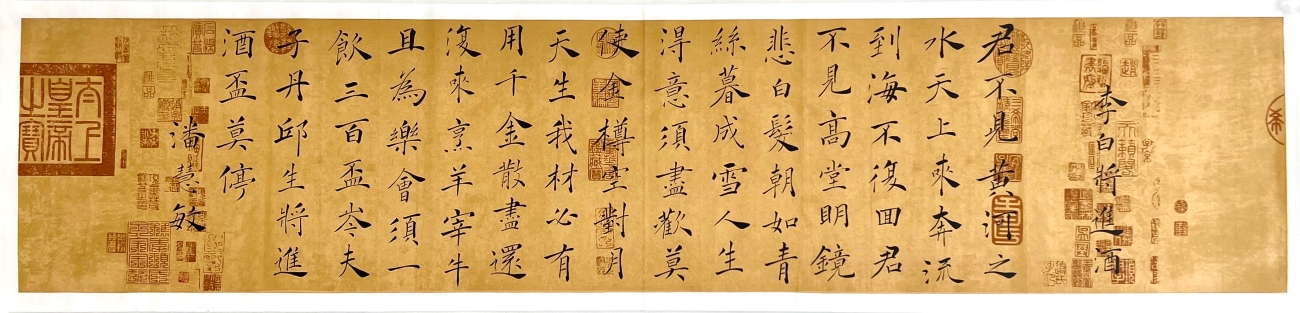 李白將進酒
君不見黃河之
水天上來奔流
到海不復回君
不見高堂明鏡
悲白髮朝如青
絲暮成雪人生
得意須盡歡莫
使金樽空對月
天生我材必有
用千金散盡還
復來烹羊宰牛
且為樂會須一
飲三百盃岑夫
子丹邱生將進
酒盃莫停
潘慧敏
太上
皇帝
之寶